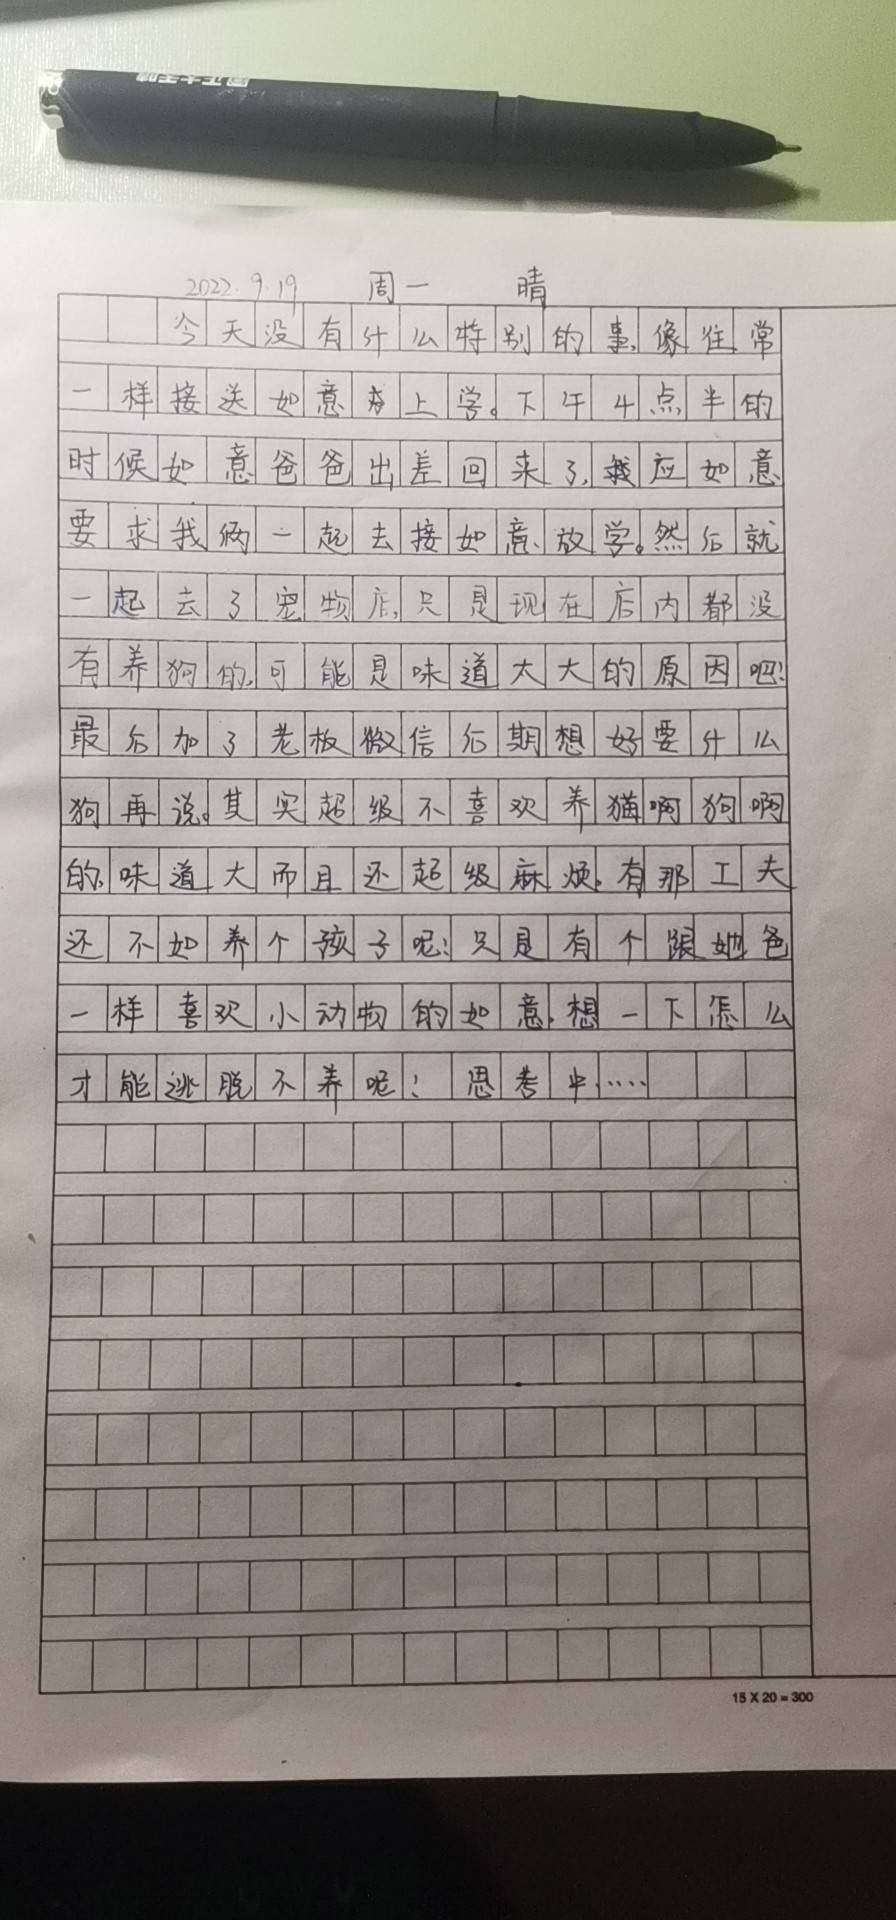 2022.9.19 周一 晴
今天没有什么特别的事,像往常
一样接送如意上学。下午4点半的
时候如意爸爸出差回来了,我应如意
要求我俩一起去接如意放学。然后就
一起去了宠物店,只是现在店内都没
有养狗的,可能是味道太大的原因吧!
最后加了老板微信后期想好要什么
狗再说。其实超级不喜欢养猫啊狗啊
的,味道大而且还超级麻烦,有那工夫
还不如养个孩子呢!只是有个跟她爸
一样喜欢小动物的如意,想一下怎么
才能逃脱不养呢!思考中……
15 X 20 = 300